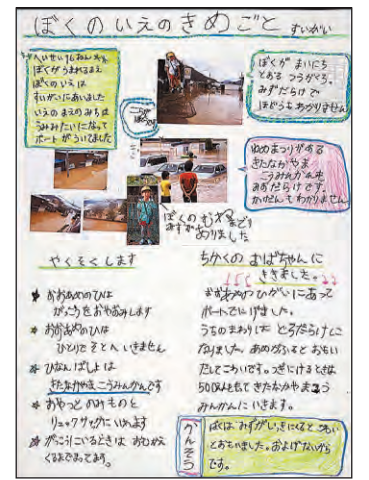 ぼくのいえのきめごと すいがい
へいせい16ねん
ぼくがうまれるまえ
ぼくのいえは
すいがいにあいました
いえのまえのみちは
うみみたいになって
ボートがういてました
ぼくが まいにち
とおる つうがくろ。
みずだらけで
ほどうも わかりません
ゆめまつりがある
きたなかやま
こうみんかんも
みずだらけです。
かいだんもわかりません
ぼくの むねまで
みずが ありました
やくそくします
★ おおあめのひは
がっこうをおやすみします
★ おおあめのひは
ひとりでそとへ いきません
★ ひなんばしょは
きたなかやまこうみんかんです
★ おやつと のみものを
リュックサックに いれます
★ がっこうにいるときは おむかえ
くるまでまってます。
ちかくの おばちゃんに
ききました。
まずわのひがいにあって
ボートでにげました。
うちのまわりは どろだらけに
なりました。あめがふると おもい
だしてこわいです。つぎにけるときは
きたなかやまこう
みんかんに いきます。
かんそう
ぼくは みずがいっきにくると こわい
とおもいました。およげないから
です。